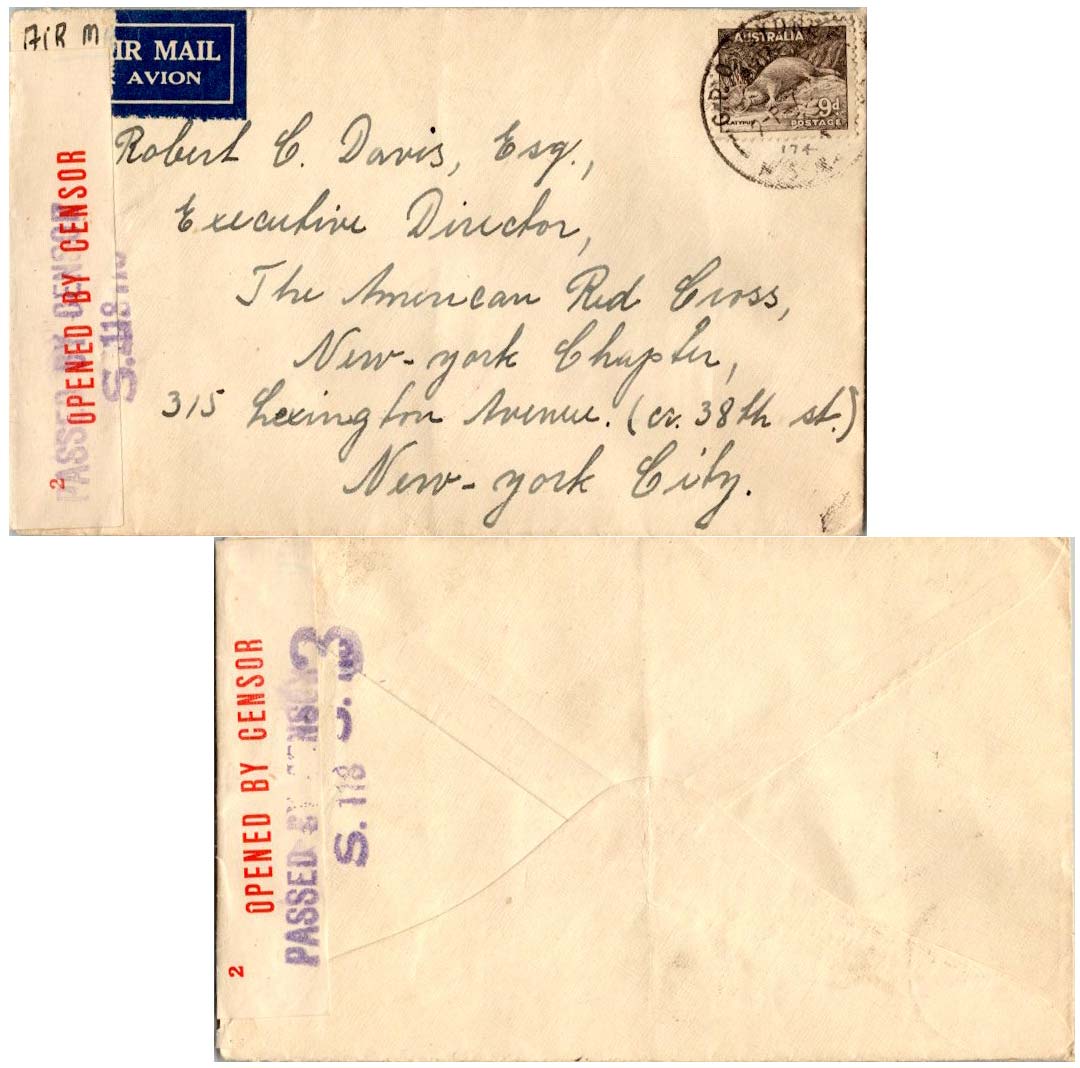 AIR M
IR MAIL
AVION
AUSTRALIA
9d
POSTAGE
G.P.O. SYDNEY
174
N.S.W.
Robert C. Davis, Esq.,
Executive Director,
The American Red Cross,
New-york Chapter,
315 Lexington Avenue. (cr. 38th st.)
New-york City.
2 OPENED BY CENSOR
PASSED BY CENSOR
S. 118
2 OPENED BY CENSOR
PASSED BY CENSOR
3
S. 118